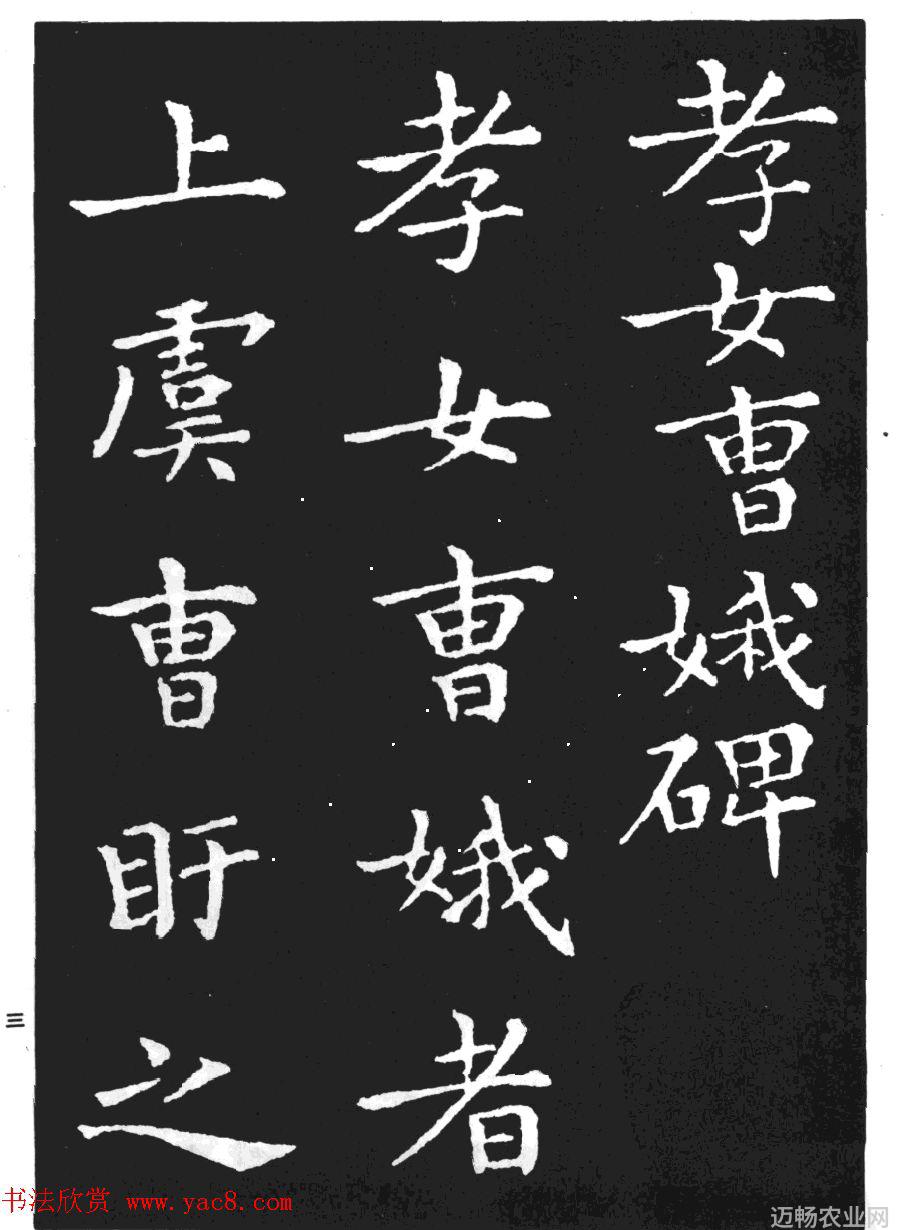 孝女曹娥碑
孝女曹娥者
上虞曹盱之
三
书法欣赏 www.yac8.com
迈畅农业网